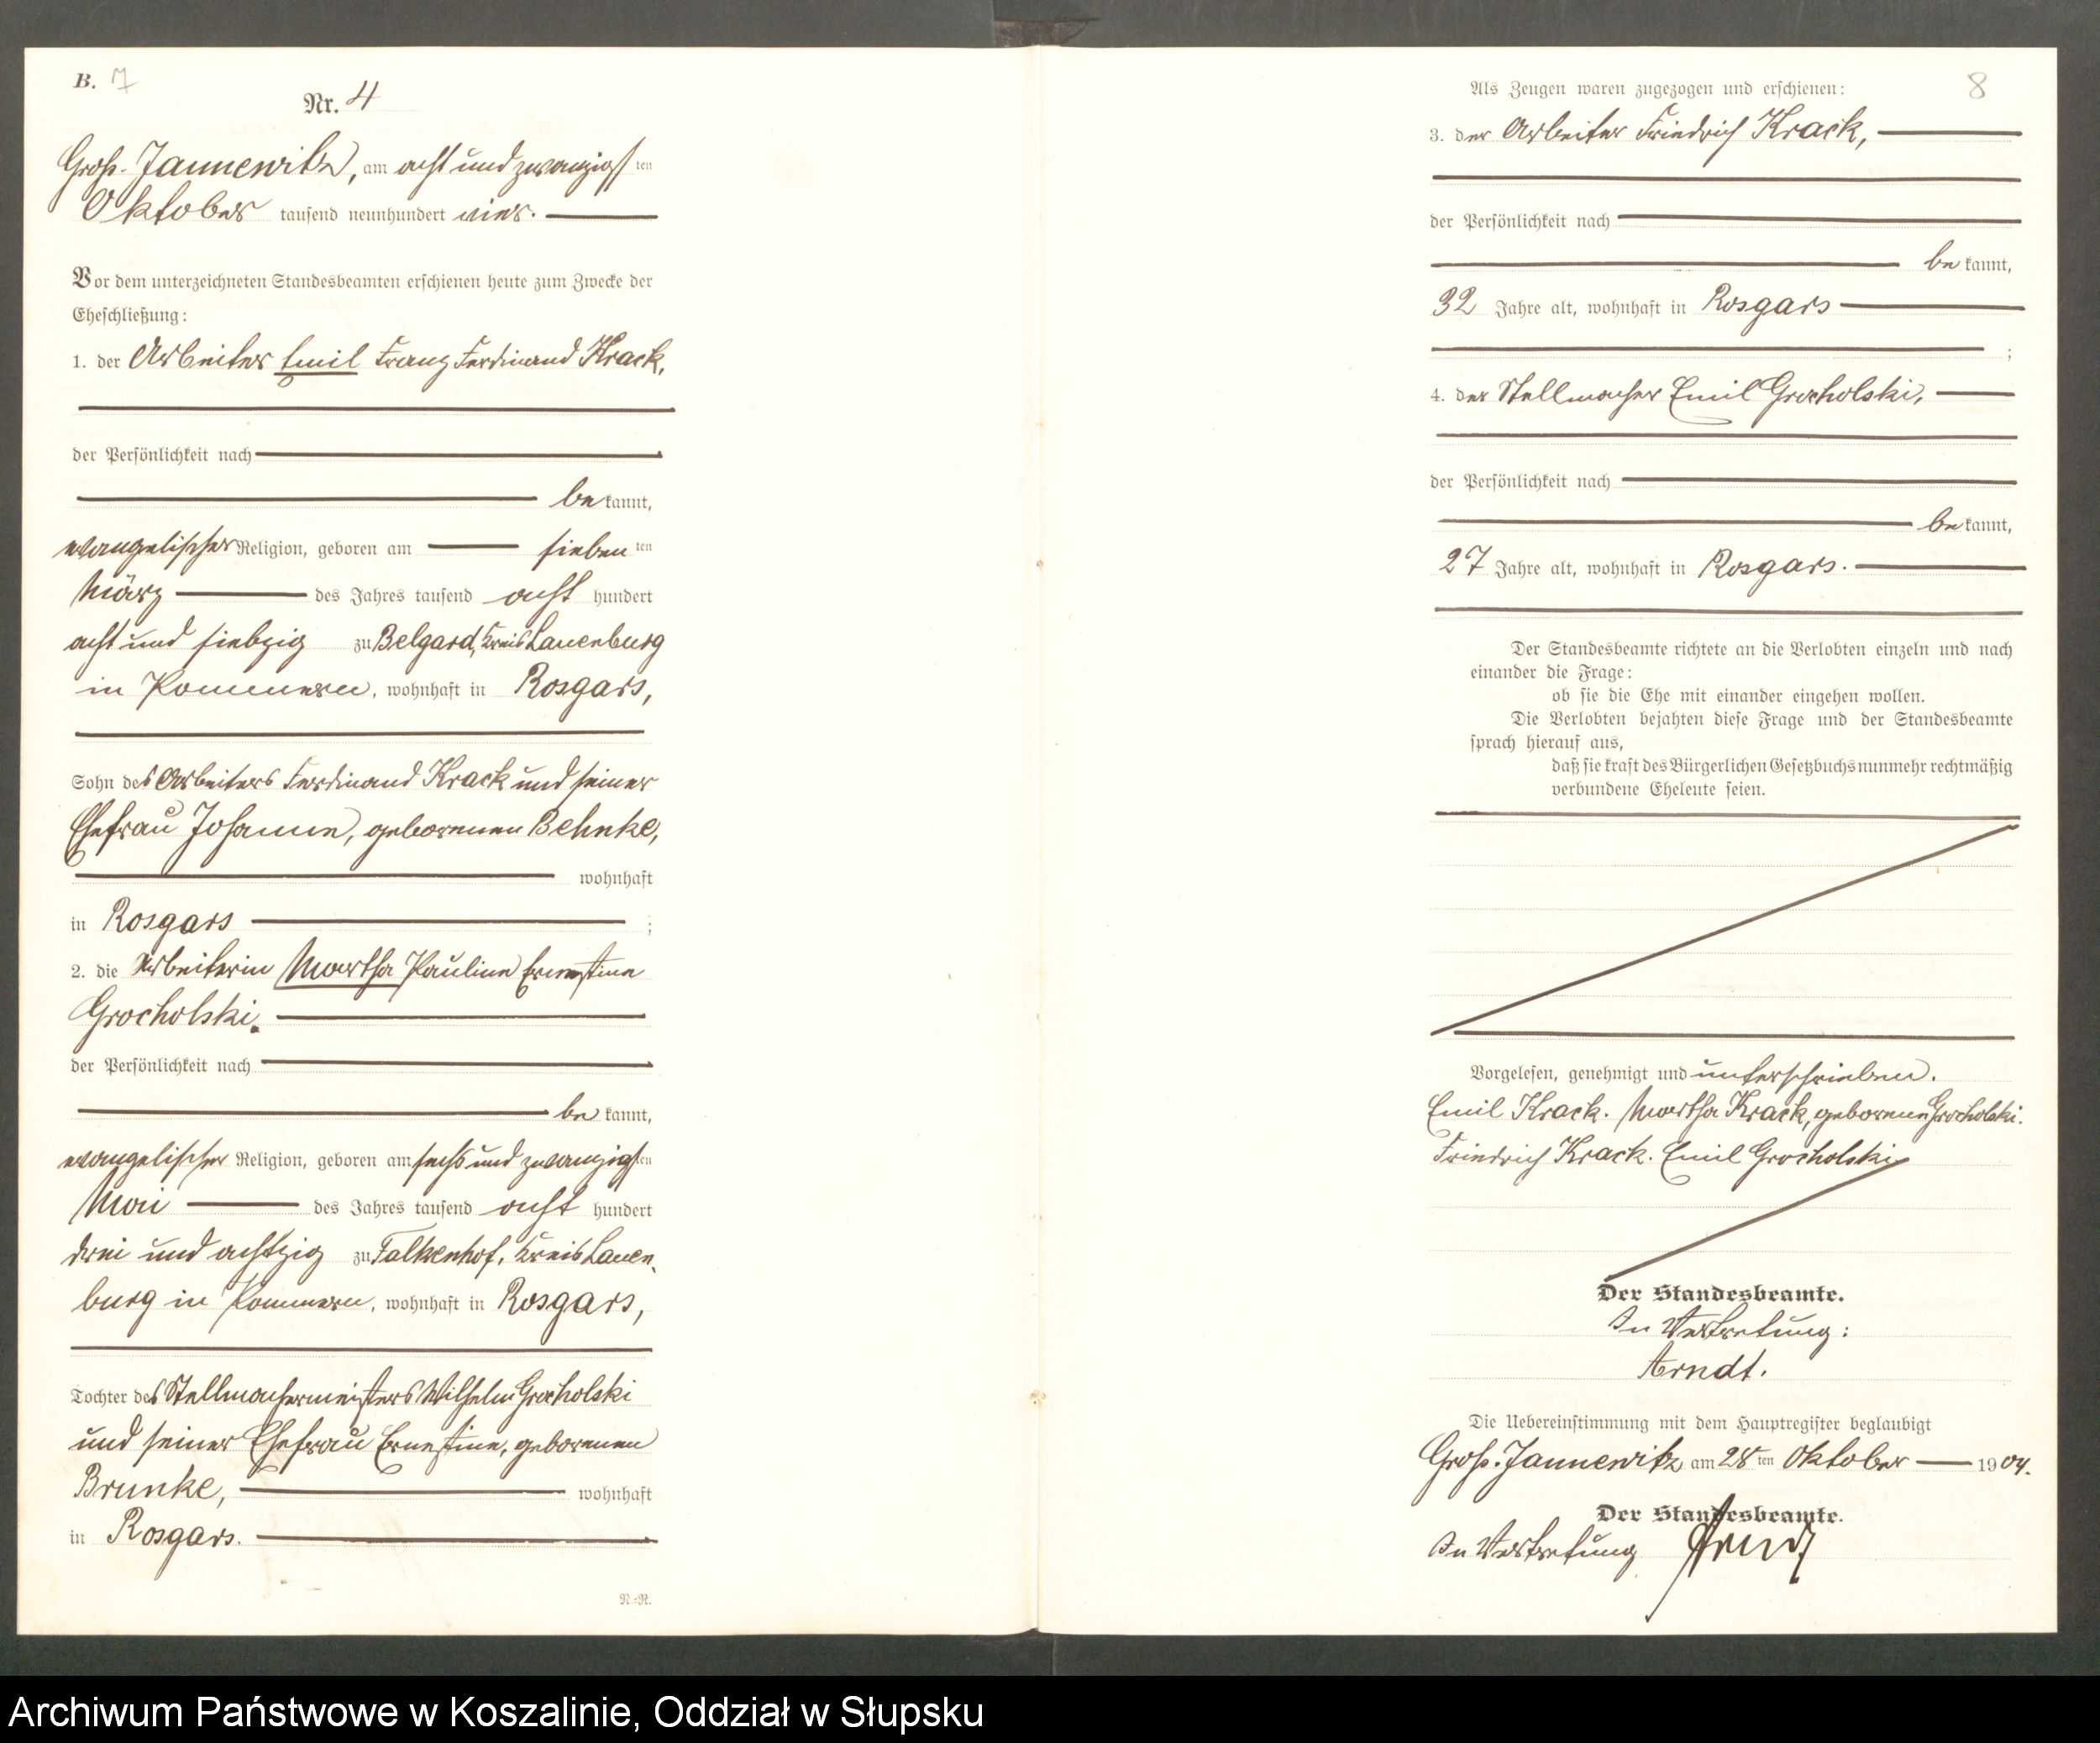 B. 7
Nr. 4
Groß-Jannewitz, am acht und zwanzigsten
Oktober tausend neunhundert vier.
Vor dem unterzeichneten Standesbeamten erschienen heute zum Zwecke der
Eheschließung:
1. der Arbeiter Emil Franz Ferdinand Krack,
der Persönlichkeit nach
be kannt,
evangelischer Religion, geboren am sieben ten
März des Jahres tausend acht hundert
acht und siebzig zu Belgard, Kreis Lauenburg
in Pommern, wohnhaft in Rosgars,
Sohn des Arbeiters Ferdinand Krack und seiner
Ehefrau Johanne, geborenen Behnke,
wohnhaft
in Rosgars ;
2. die Arbeiterin Martha Pauline Ernestine
Grocholski.
der Persönlichkeit nach
be kannt,
evangelischer Religion, geboren am sechs und zwanzigsten
Mai des Jahres tausend acht hundert
drei und achtzig zu Falkenhof, Kreis Lauen-
burg in Pommern, wohnhaft in Rosgars,
Tochter des Stellmachermeisters Wilhelm Grocholski
und seiner Ehefrau Ernestine, geborenen
Brunke, wohnhaft
in Rosgars.
N.-N.
8
Als Zeugen waren zugezogen und erschienen:
3. der Arbeiter Friedrich Krack,
der Persönlichkeit nach
be kannt,
32 Jahre alt, wohnhaft in Rosgars
;
4. der Stellmacher Emil Grocholski,
der Persönlichkeit nach
be kannt,
27 Jahre alt, wohnhaft in Rosgars.
Der Standesbeamte richtete an die Verlobten einzeln und nach
einander die Frage:
ob sie die Ehe mit einander eingehen wollen.
Die Verlobten bejahten diese Frage und der Standesbeamte
sprach hierauf aus,
daß sie kraft des Bürgerlichen Gesetzbuchs nunmehr rechtmäßig
verbundene Eheleute seien.
Vorgelesen, genehmigt und unterschrieben.
Emil Krack. Martha Krack, geborene Grocholski.
Friedrich Krack. Emil Grocholski
Der Standesbeamte.
In Vertretung:
Arndt.
Die Uebereinstimmung mit dem Hauptregister beglaubigt
Groß-Jannewitz am 28 ten Oktober 1904.
Der Standesbeamte.
In Vertretung Arndt
Archiwum Państwowe w Koszalinie, Oddział w Słupsku